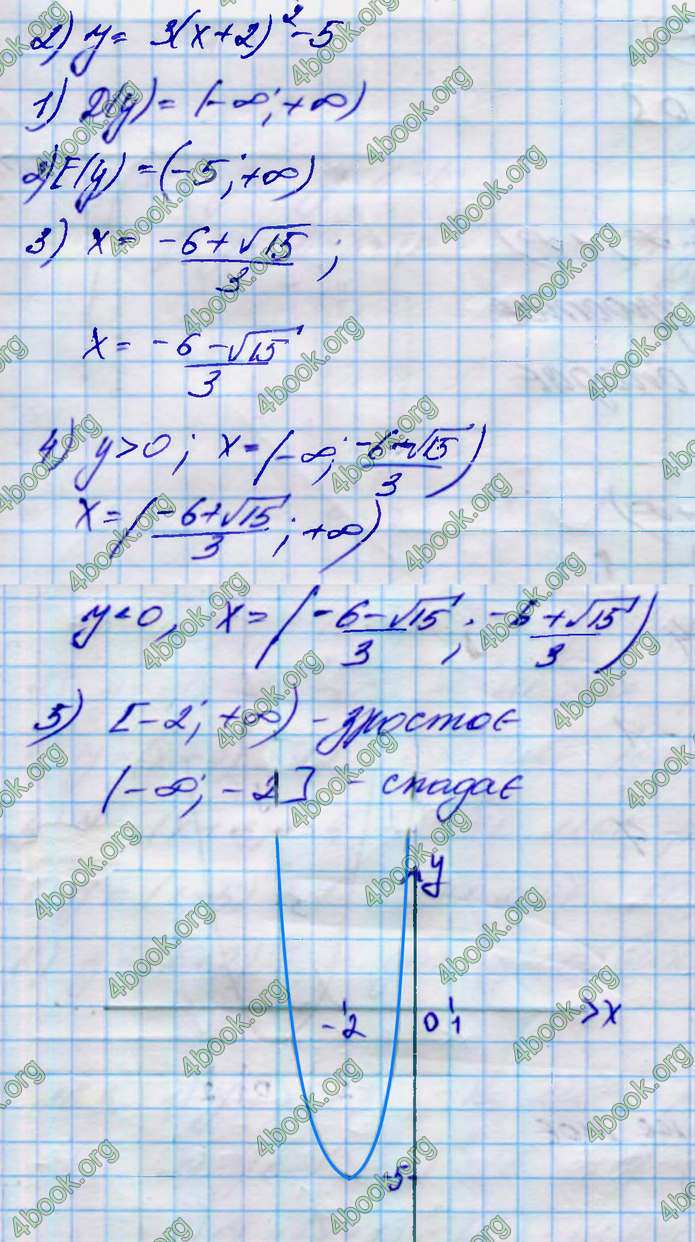 2) y = 3(x+2)² - 5
1) D(y) = (-∞; +∞)
2) E(y) = (-5; +∞)
3) x = (-6+√15)/3 ;
x = (-6-√15)/3
4) y>0; x = (-∞; (-6-√15)/3)
x = ((-6+√15)/3 ; +∞)
y<0, x = ((-6-√15)/3 ; (-6+√15)/3)
5) [-2; +∞) - зростає
(-∞; -2] - спадає
y
-2 0 1 x
-5
4book.org